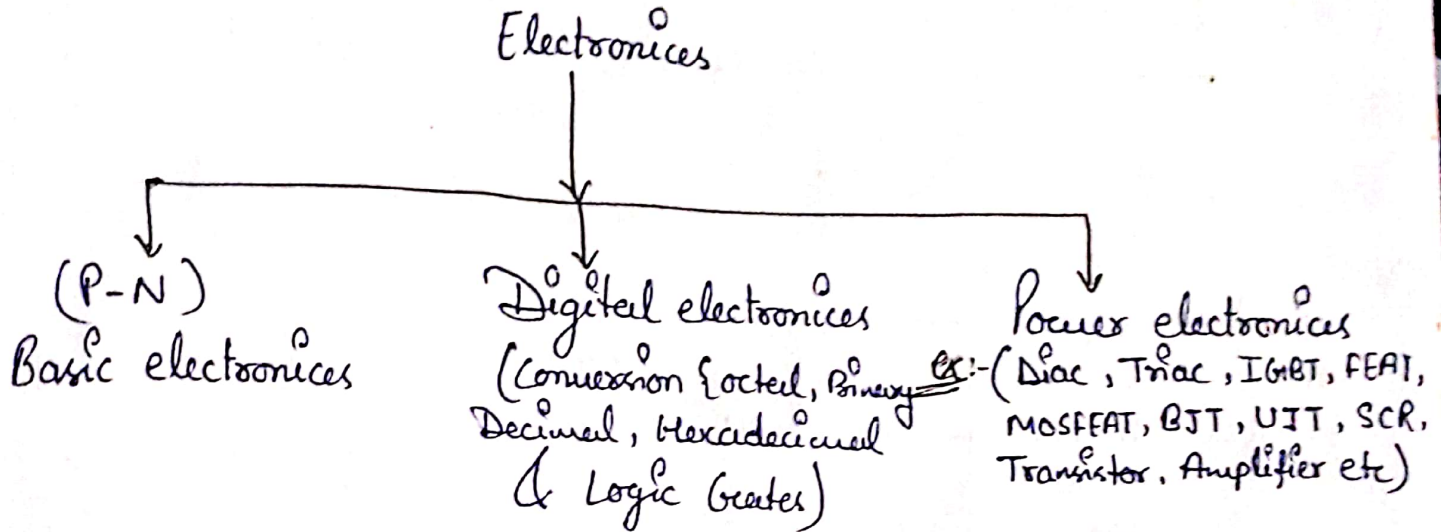 Electronices
(P-N)
Basic electronices
Digital electronices
(Conversion {octal, Binary
Decimal, Hexadecimal
& Logic Gates)
Power electronices
ex:-(Diac, Triac, IGBT, FEAT,
MOSFEAT, BJT, UJT, SCR,
Transistor, Amplifier etc)